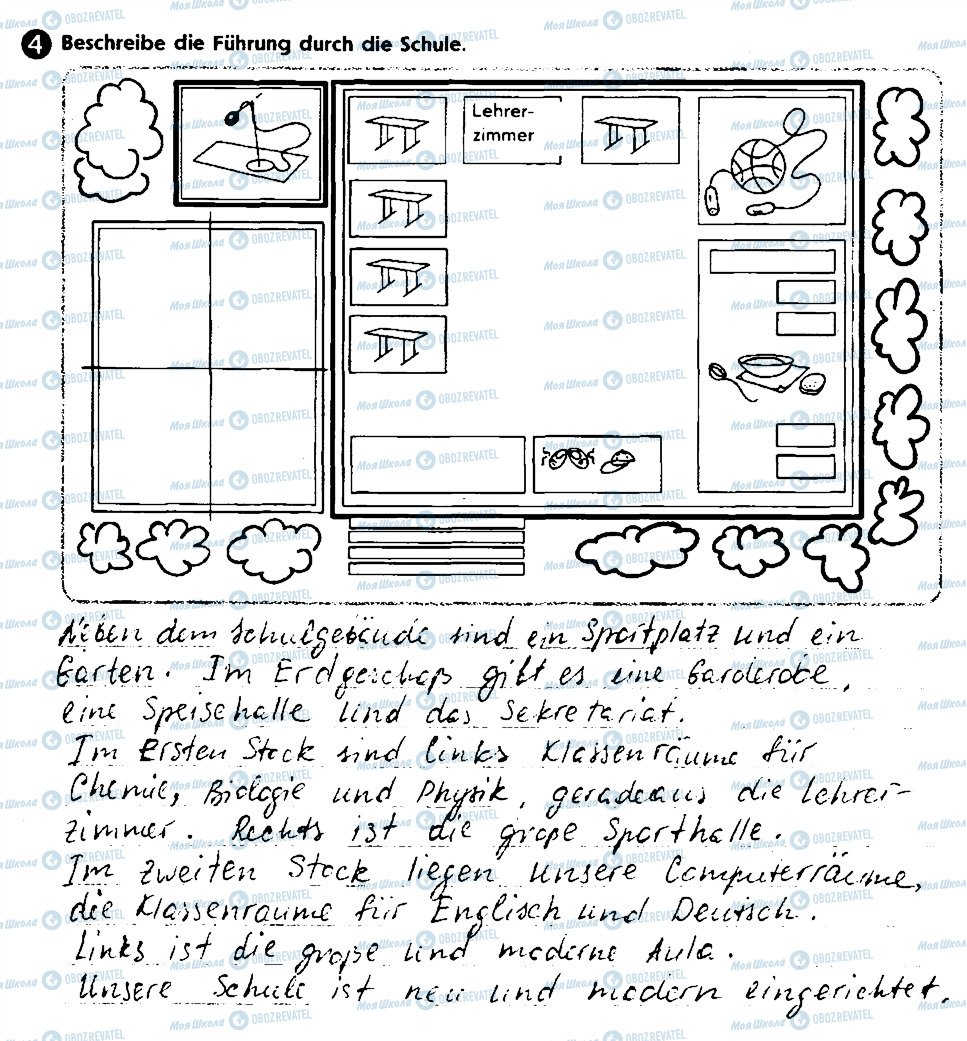 4 Beschreibe die Führung durch die Schule.
Lehrer-
zimmer
Neben dem Schulgebäude sind ein Sportplatz und ein
Garten. Im Erdgeschoß gibt es eine Garderobe,
eine Speisehalle und das Sekretariat.
Im Ersten Stock sind links Klassenräume für
Chemie, Biologie und Physik, geradeaus die Lehrer-
zimmer. Rechts ist die große Sporthalle.
Im zweiten Stock liegen unsere Computerräume,
die Klassenraume für Englisch und Deutsch.
Links ist die große und moderne Aula.
Unsere Schule ist neu und modern eingerichtet.
Моя Школа OBOZREVATEL